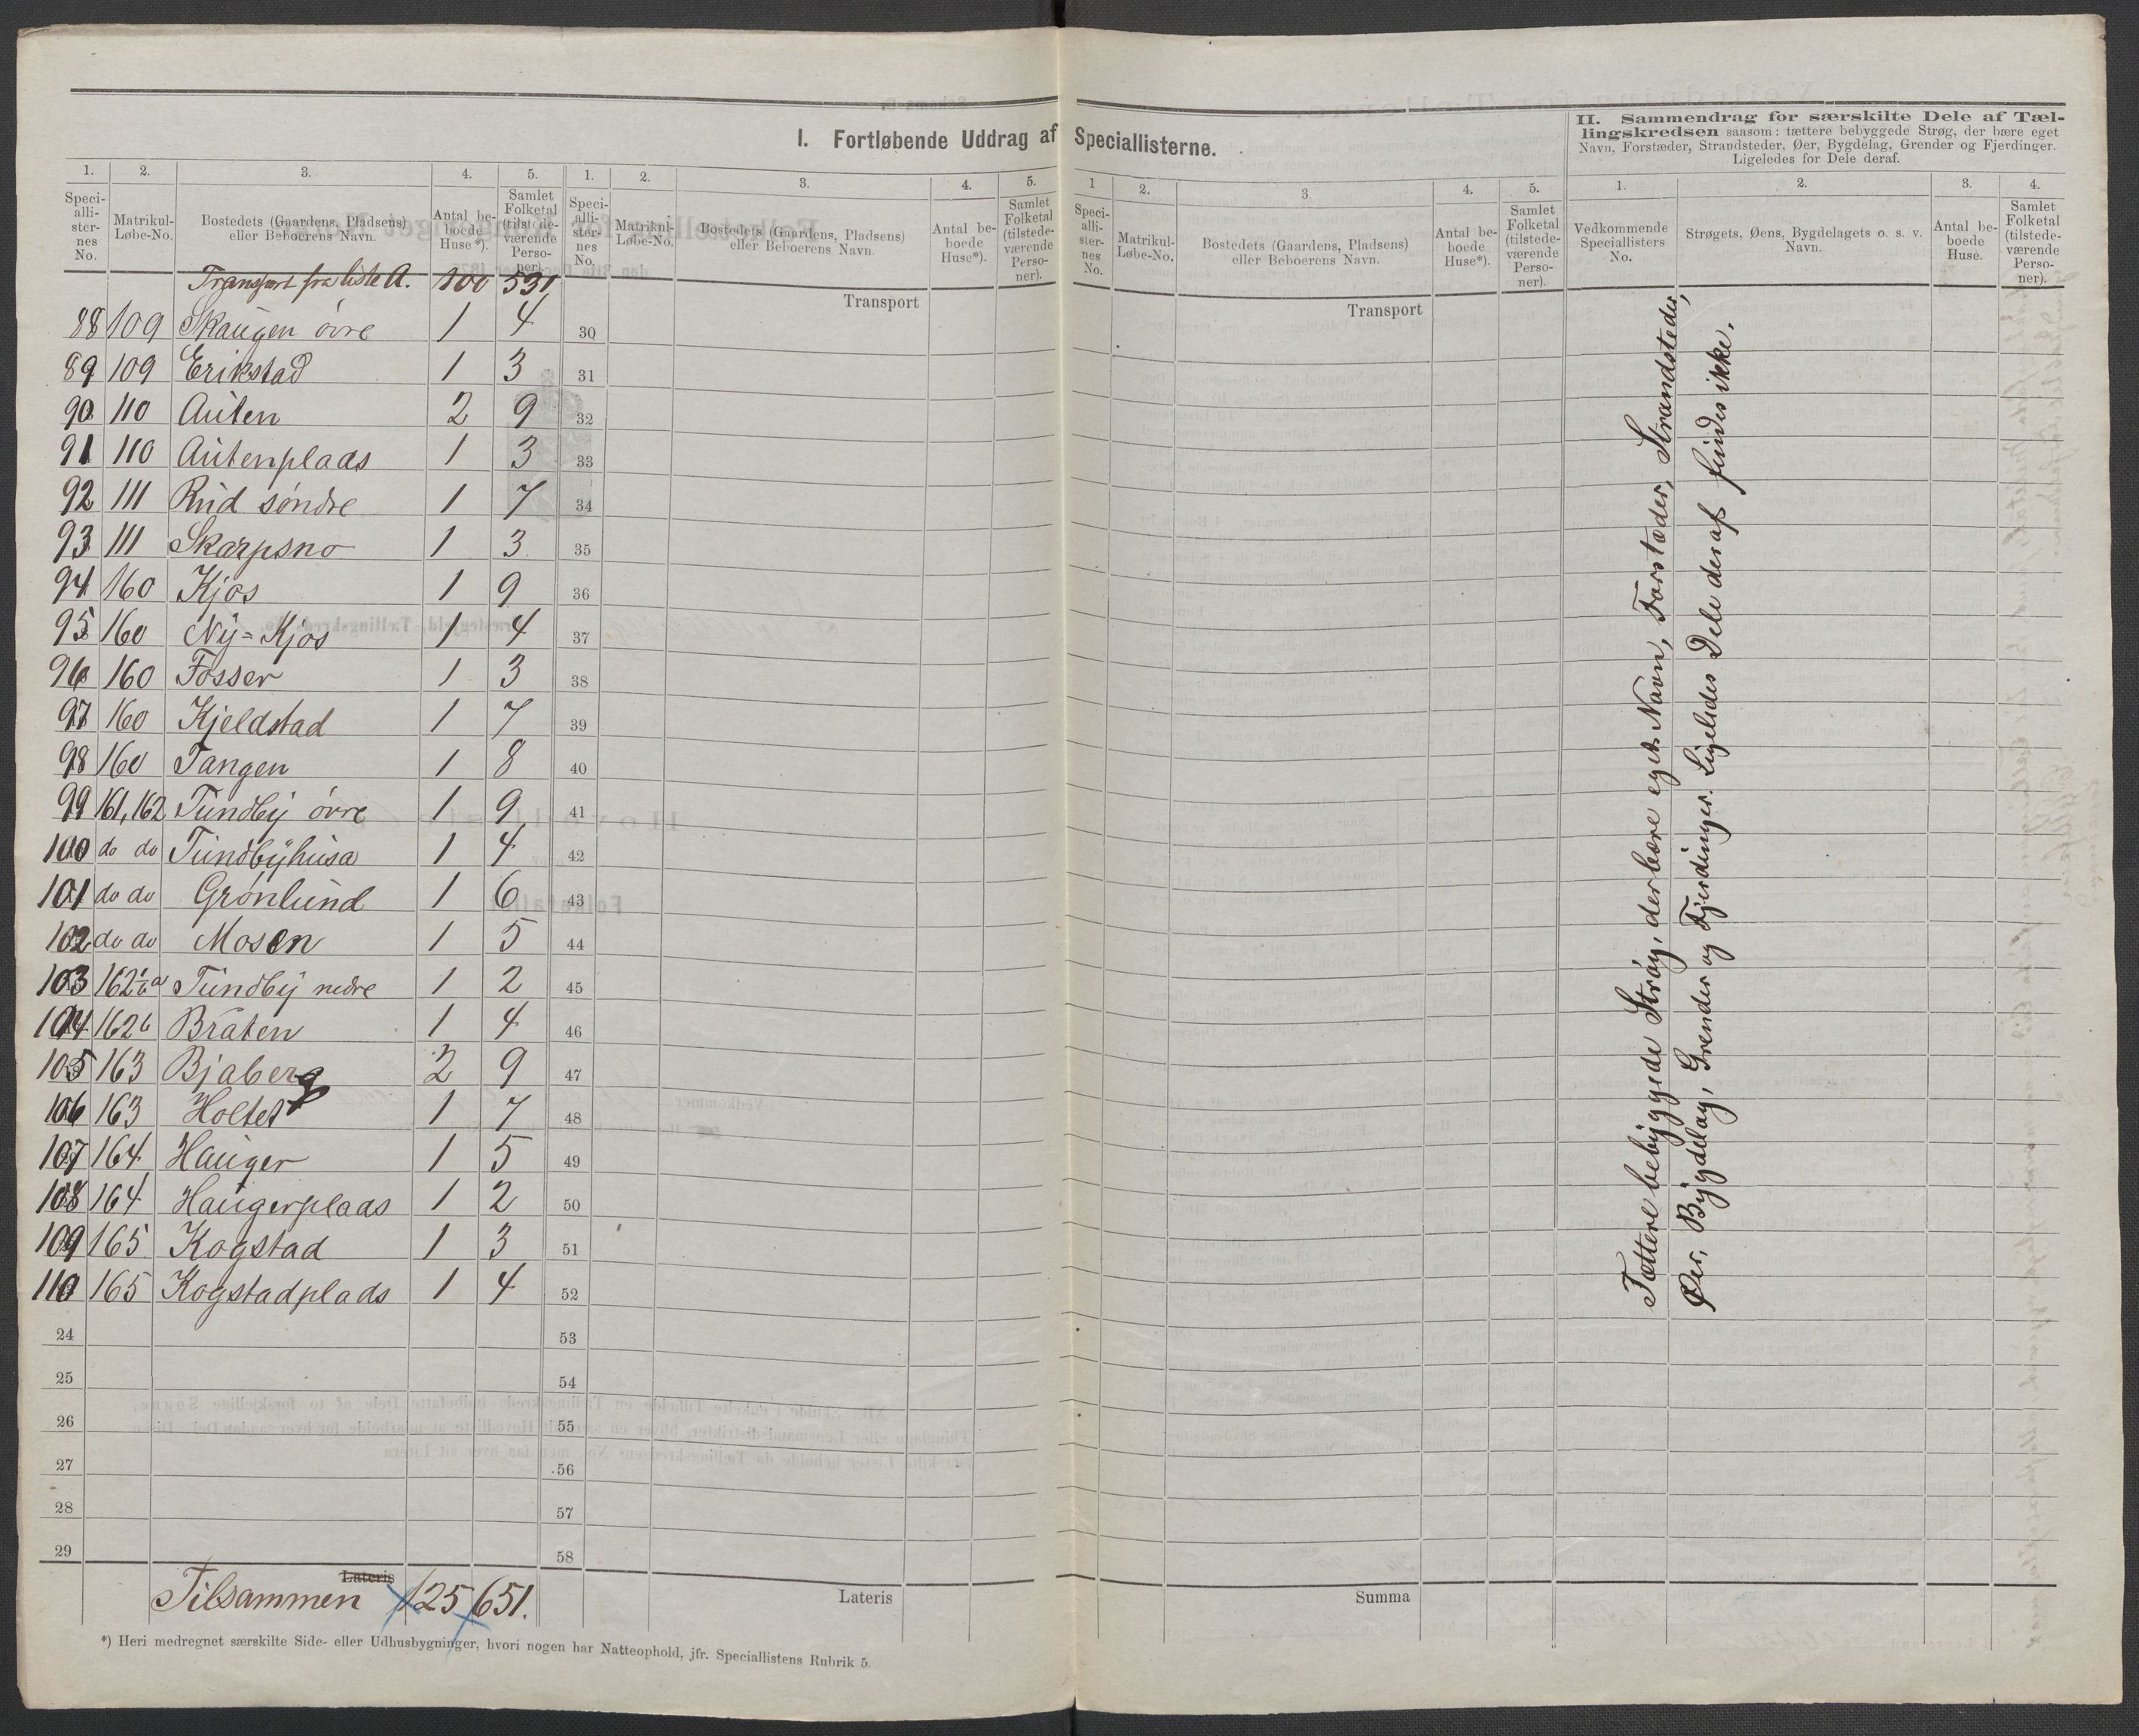 I. Fortløbende Uddrag af Speciallisterne.
II. Sammendrag for særskilte Dele af Tæl-
lingskredsen saasom: tættere bebyggede Strøg, der bære eget
Navn, Forstæder, Strandsteder, Øer, Bygdelag, Grender og Fjerdinger.
Ligeledes for Dele deraf.
1. 2. 3. 4. 5. 1. 2. 3. 4. 5. 1 2. 3. 4. 5. 1. 2. 3. 4.
Speci-alli-ster-nes No. Matrikul-Løbe-No. Bostedets (Gaardens, Pladsens) eller Beboerens Navn. Antal be-boede Huse*). Samlet Folketal (tilstede-værende Perso-ner).
Speci-alli-ster-nes No. Matrikul-Løbe-No. Bostedets (Gaardens, Pladsens) eller Beboerens Navn. Antal be-boede Huse*). Samlet Folketal (tilstede-værende Perso-ner).
Speci-alli-ster-nes No. Matrikul-Løbe-No. Bostedets (Gaardens, Pladsens) eller Beboerens Navn. Antal be-boede Huse*). Samlet Folketal (tilstede-værende Perso-ner).
Vedkommende Speciallisters No. Strøgets, Øens, Bygdelagets o. s. v. Navn. Antal be-boede Huse. Samlet Folketal (tilstede-værende Perso-ner).
Transport fra liste A. 100 531
Transport
Transport
88 109 Skaugen øvre 1 4 30
89 109 Erikstad 1 3 31
90 110 Auten 2 9 32
91 110 Autenplads 1 3 33
92 111 Rud søndre 1 7 34
93 111 Skarpsno 1 3 35
94 160 Kjos 1 9 36
95 160 Ny=Kjos 1 4 37
96 160 Fosser 1 3 38
97 160 Kjeldstad 1 7 39
98 160 Tangen 1 8 40
99 161, 162 Tundby øvre 1 9 41
100 do do Tundbyhusa 1 4 42
101 do do Grønlund 1 6 43
102 do do Mosen 1 5 44
103 162 a Tundby nedre 1 2 45
104 162b Braten 1 4 46
105 163 Bjaberg 2 9 47
106 163 Holtet 1 7 48
107 164 Hauger 1 5 49
108 164 Haugerplads 1 2 50
109 165 Kogstad 1 3 51
110 165 Kogstadplads 1 4 52
24 53
25 54
26 55
27 56
28 57
29 58
Lateris
Tilsammen 125 651.
Lateris
Summa
*) Heri medregnet særskilte Side- eller Udhusbygninger, hvori nogen har Natteophold, jfr. Speciallistens Rubrik 5.
Tættere bebyggede Strøg, der bære eget Navn, Forstæder, Strandsteder,
Øer, Bygdelag, Grender og Fjerdinger. Ligeledes Dele deraf findes ikke.